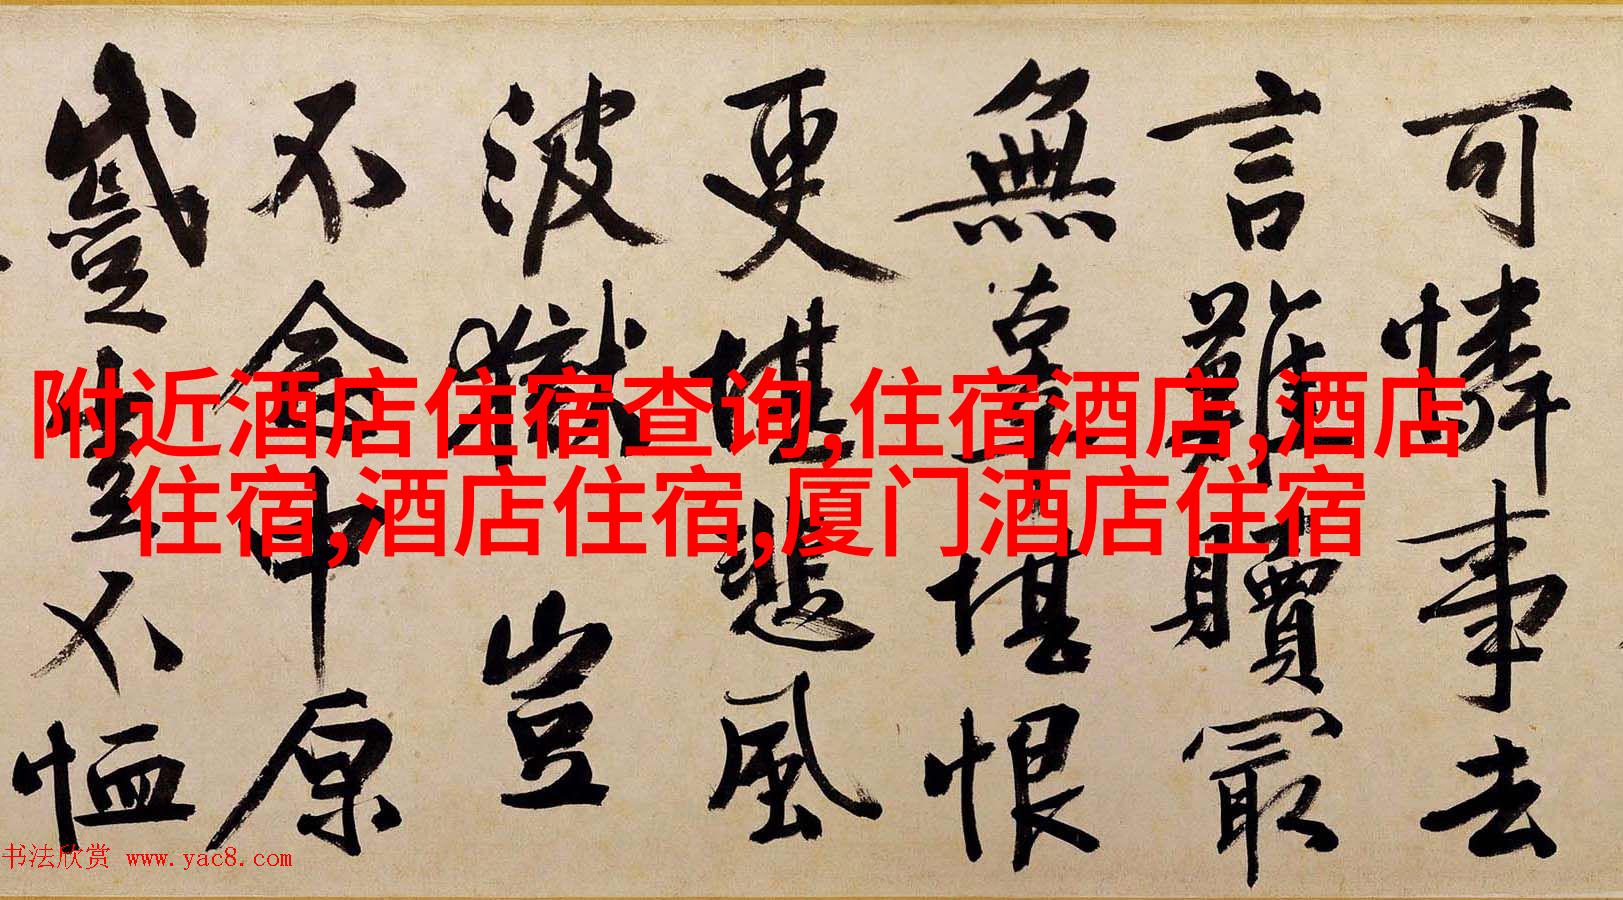 可憐事去
言難贖冣
無辜堪恨
更堪悲風
波獄豈
不念中原
蹙豈不恤
附近酒店住宿查询,住宿酒店,酒店
住宿,酒店住宿,厦门酒店住宿
书法欣赏 www.yac8.com